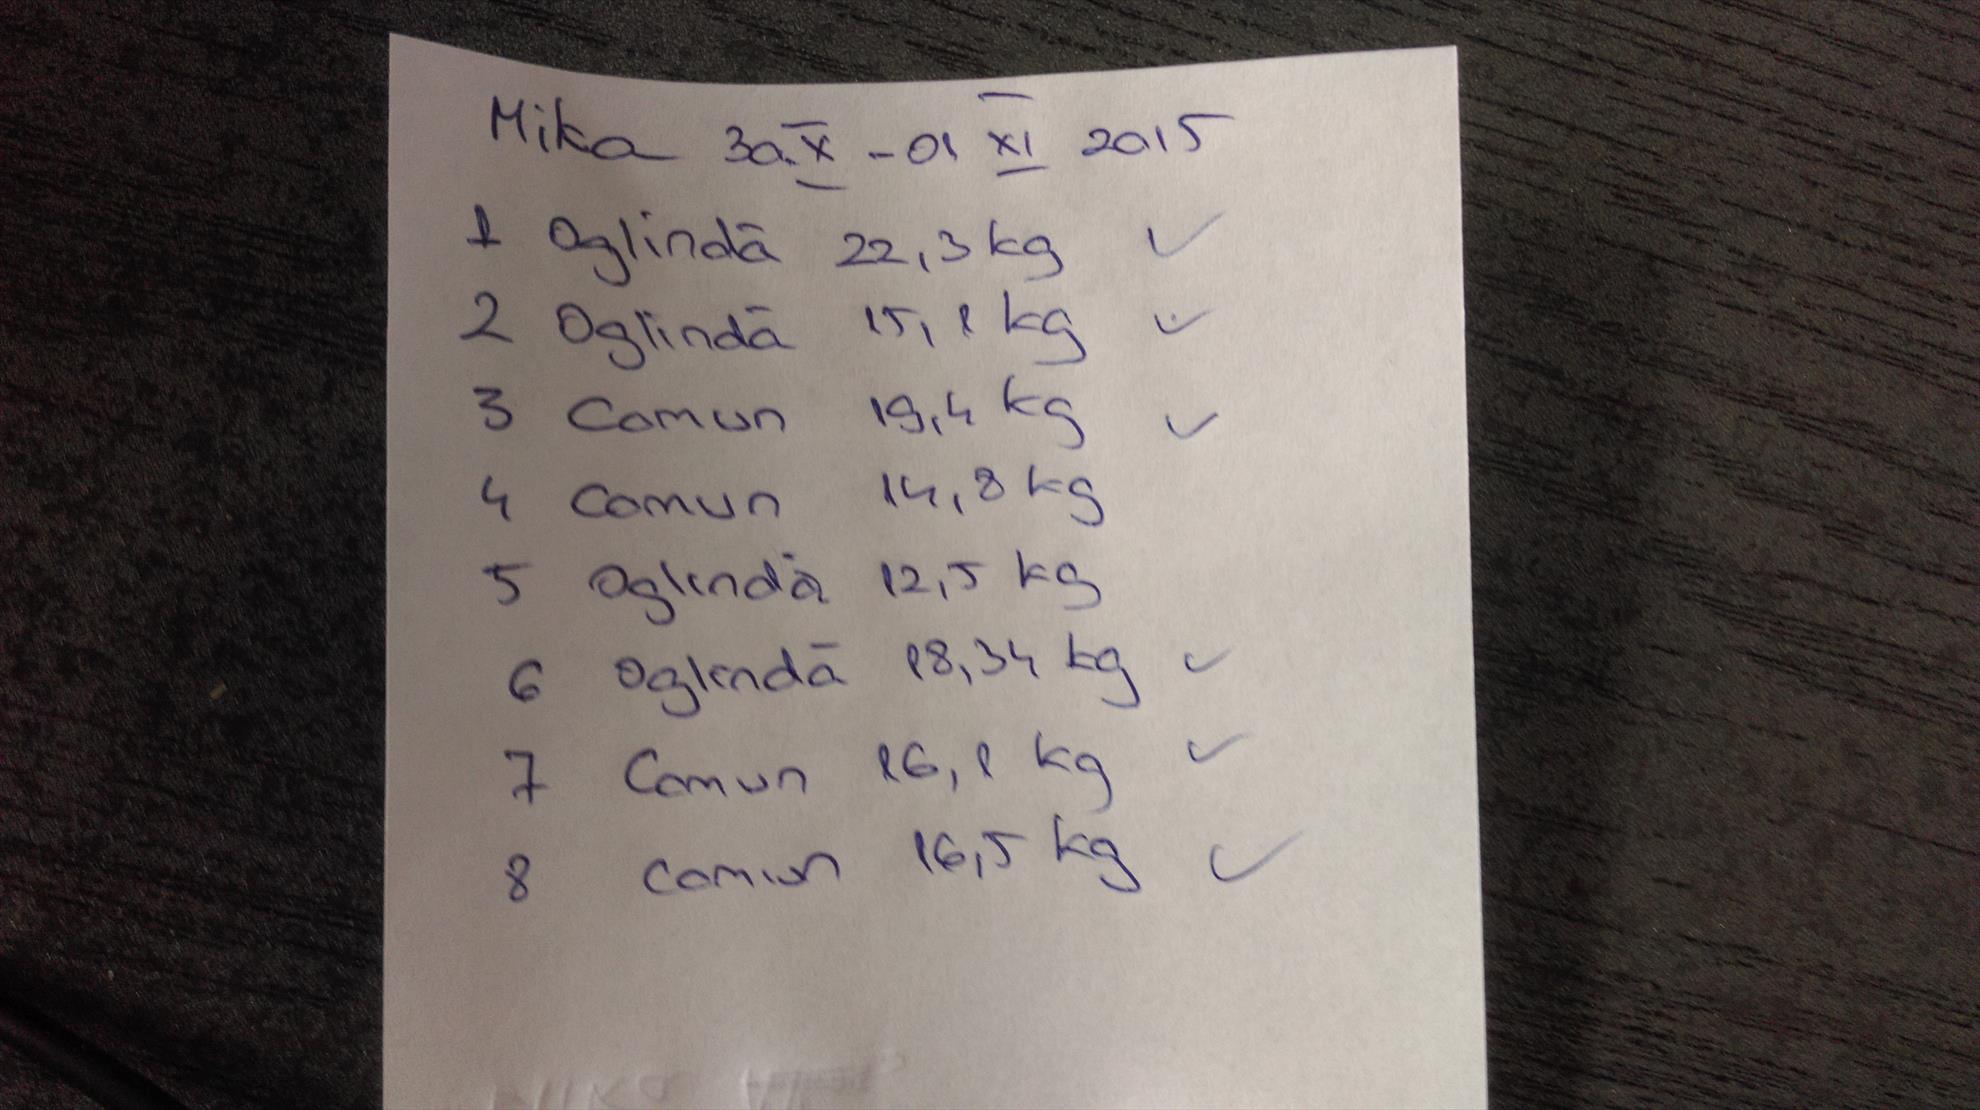 Mika 30.X - 01 XI 2015
1 Oglindă 22,3 kg ✓
2 Oglindă 15,1 kg ✓
3 Comun 19,4 kg ✓
4 Comun 14,8 kg
5 Oglindă 12,5 kg
6 Oglindă 18,34 kg ✓
7 Comun 16,1 kg ✓
8 Comun 16,5 kg ✓